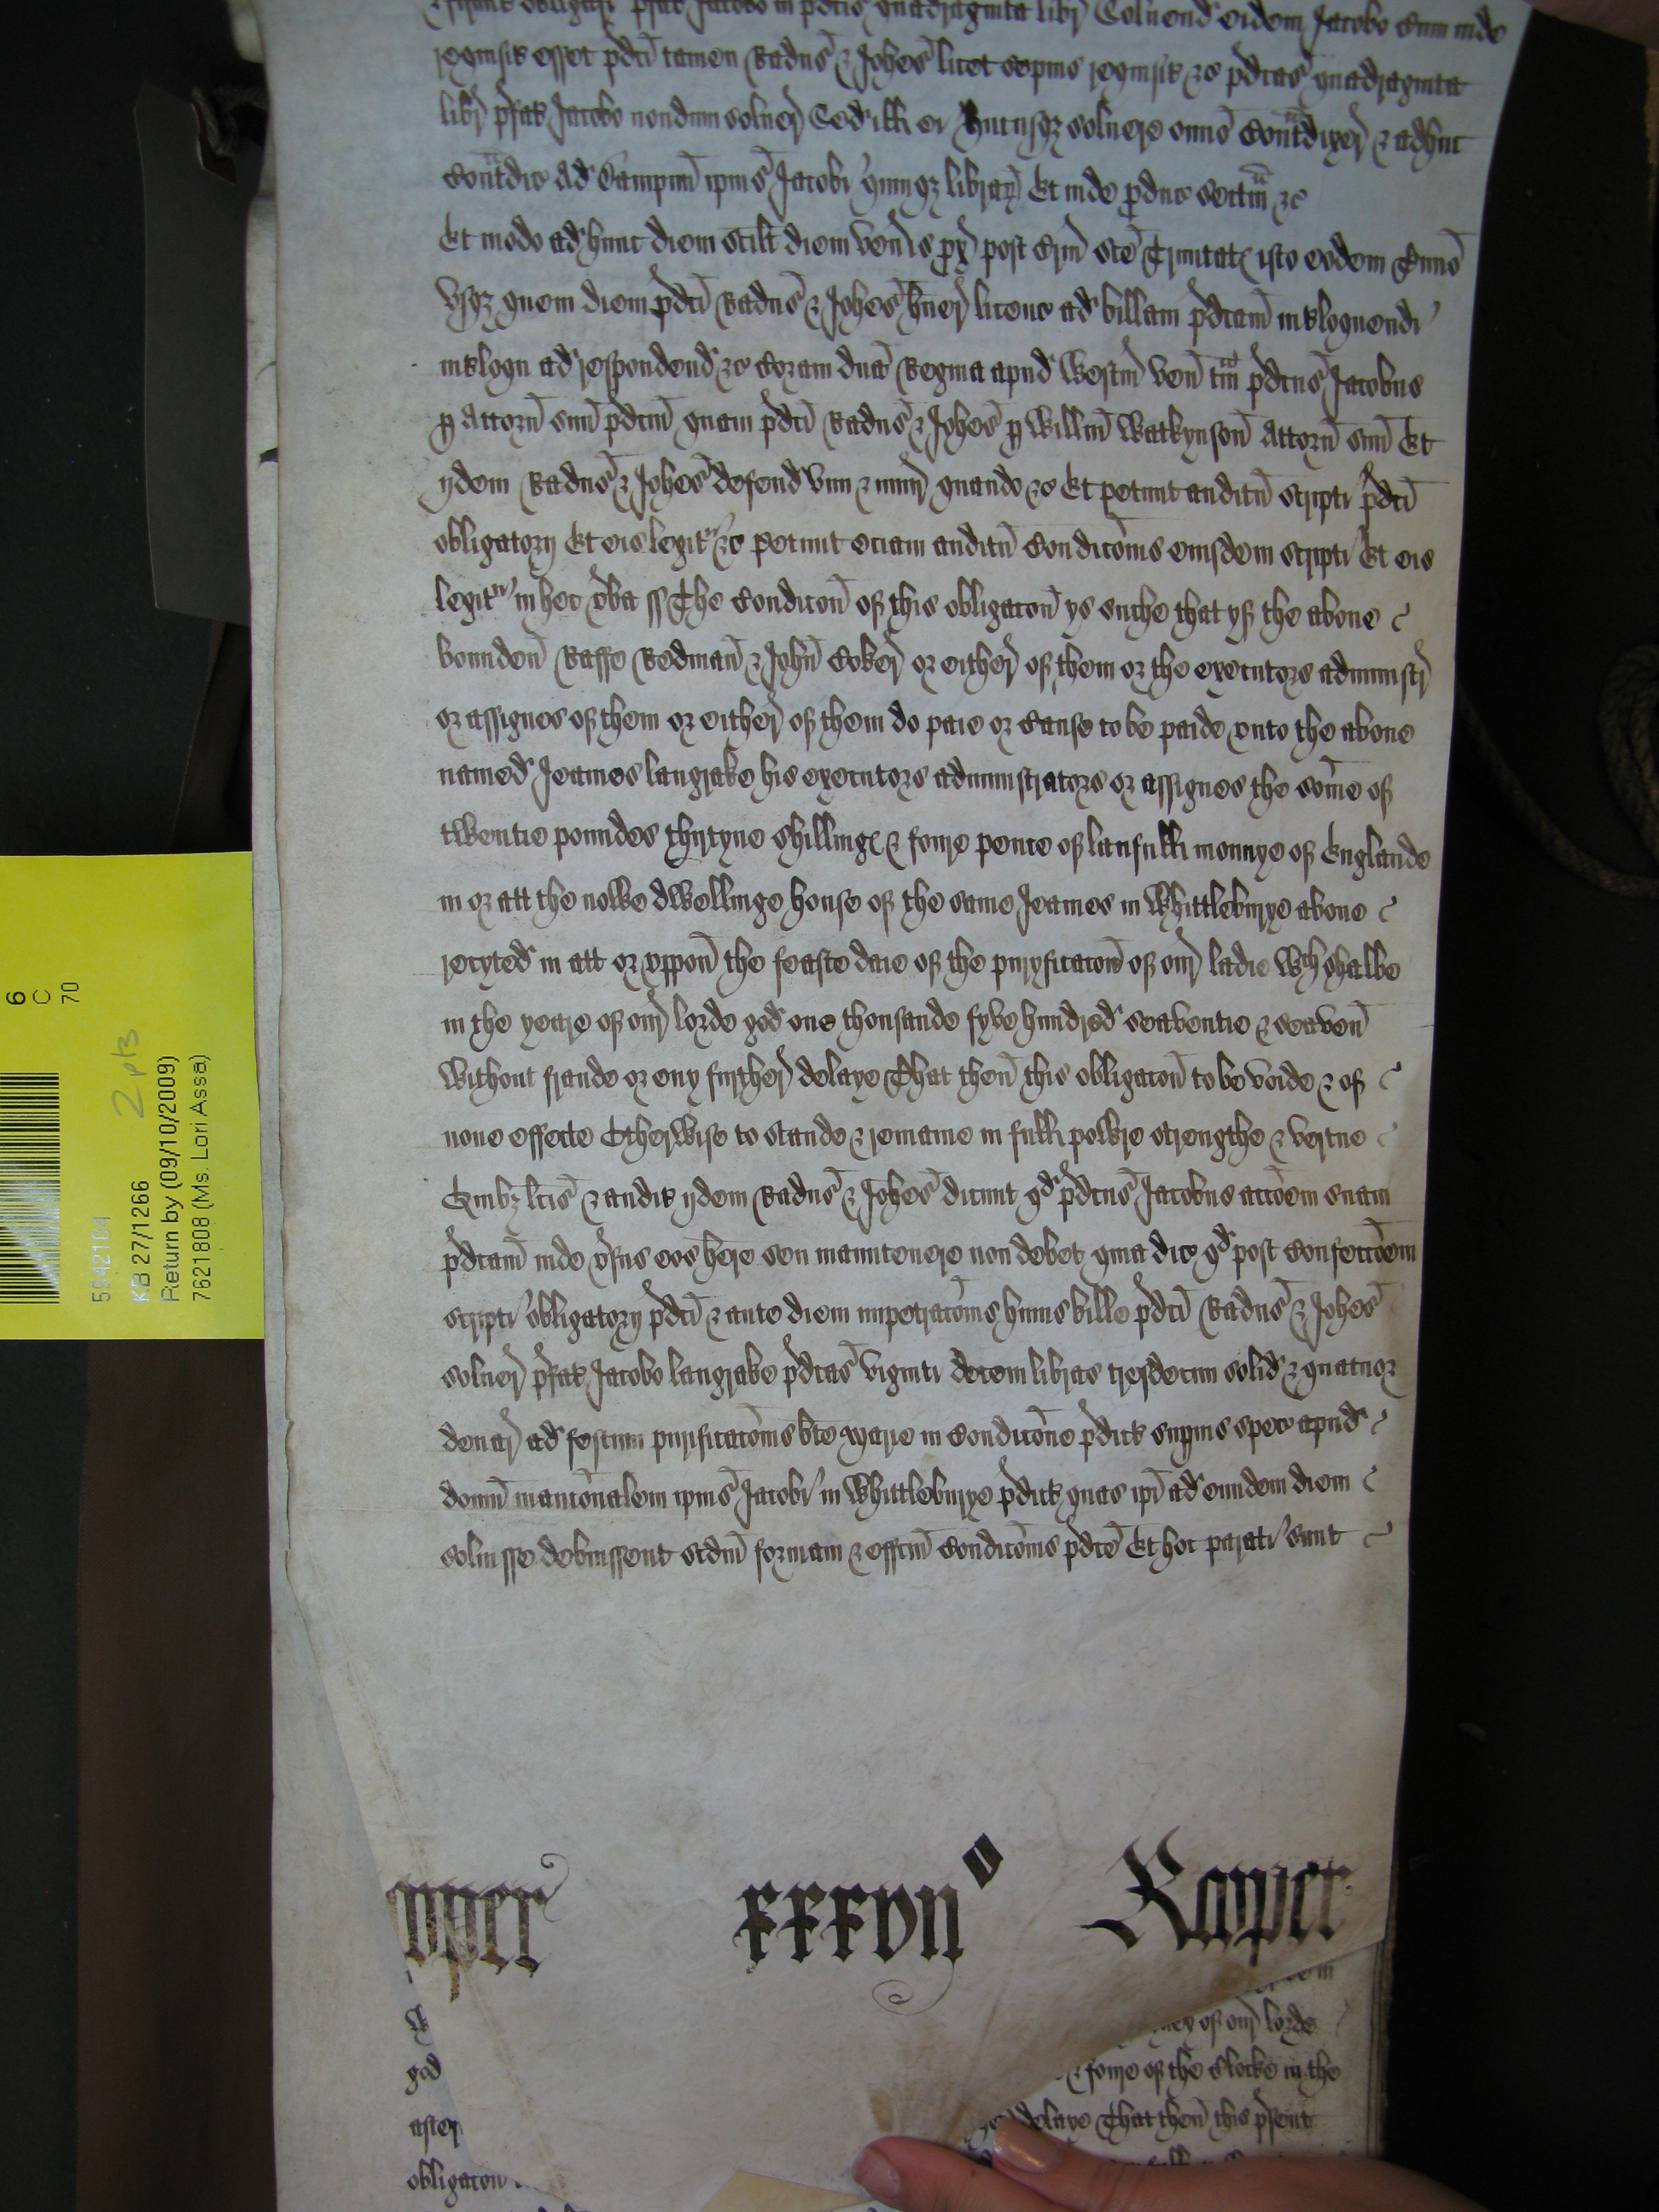 obligari p̄fat Jacobo in p̄dc̄is quadraginta libr̄ Solvend eidem Jacobo Cum inde
requisit̄ esset p̄dc̄i tamen Radus̄ & Joh̄es licet sepius requisit̄ &c p̄dc̄as quadraginta
libr̄ p̄fat̄ Jacobo nondum solver̄ Sed illi ei hucusqȝ solvere om̄io Cont̄dixer̄ & adhuc
Cont̄dic̄ Ad dampnū ip̄ius Jacobi quinqȝ librar̄ Et inde p̄duc̄ sectam &c
Et modo ad hunc diem scilt̄ diem ven̄is p̄x̄ post Crm̄ sc̄e Trinitat̄ isto eodem T̄mio
Usqȝ quem diem p̄dc̄i Radus̄ & Joh̄es h̄uer̄ licenc̄ ad billam p̄dc̄am int̄loquendi
int̄loqu ad respondend &c Coram dn̄a Regina apud Westm̄ ven̄ tam p̄dc̄us Jacobus
p Attorn̄ suū p̄dc̄m quam p̄dc̄i Radus̄ & Joh̄es p Willm̄ Watkynson̄ Attorn̄ suū Et
ijdem Radus̄ & Joh̄es defend vim & iniur̄ quando &c Et petunt auditū scripti p̄dc̄i
obligatorij Et eis legit̄ &c petunt eciam auditū Condic̄onis eiusdem scripti Et eis
legit̄ in hec v̄ba ss The Condicon̄ of this obligacon̄ ys suche that yf the above
bounden̄ Raffe Redman̄ & John̄ Coker̄ or either̄ of them or the executors administr̄
or assignes of them or either̄ of them do paie or Cause to be paide unto the above
named Jeames langrake his executors administrators or assignes the som̄e of
twentie poundes thyrtyne shilling & foure pence of lawfull monnye of Englande
in or att the nowe dwellinge house of the same Jeames in Whittleburye above
recyted in att or uppon̄ the feaste daie of the puryficacon̄ of our̄ ladie wch shalbe
in the yeare of our̄ lorde god one thousande fyve hundred seaventie & seaven̄
without fraude or eny further̄ delaye That then̄ this obligacon̄ to be voide & of
none effecte Otherwise to stande & remaine in full powre strengthe & vertue
Quibȝ lc̄is & audit̄ ijdem Radus̄ & Joh̄es dicunt qd p̄dc̄us Jacobus acc̄oem suam
p̄dc̄am inde v̄sus eos h̄ere seu manutenere non debet quia dic̄ qd post Confecc̄oem
scripti obligatorij p̄dc̄i & ante diem impetrac̄onis huius bille p̄dc̄i Radus̄ & Joh̄es
solver̄ p̄fat̄ Jacobo langrake p̄dc̄as viginti decem libras tresdecim solid & quatuor
denar̄ ad festum purificac̄onis bt̄e marie in Condic̄one p̄dict̄ supius spec̄ apud
domū manc̄onalem ip̄ius Jacobi in Whittleburye p̄dict̄ quas ip̄i ad eundem diem
solvisse debuissent scdm̄ formam & effc̄m Condic̄onis p̄dc̄e Et hoc parati sunt
xxxvijo Roper
god
after
obligacon
of our̄ lorde
& foure of the Clocke in the
delaye That then̄ this p̄sent
5942104
KB 27/1266 2 pts
Return by (09/10/2009)
7621808 (Ms. Lori Assa)
6
C
70